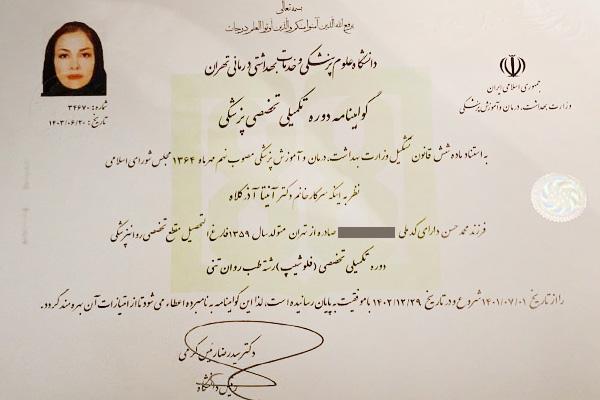 بسمه تعالی
یرفع الله الذین آمنوا منکم والذین اوتوا العلم درجات
دانشگاه علوم پزشکی و خدمات بهداشتی درمانی تهران
جمهوری اسلامی ایران
وزارت بهداشت، درمان و آموزش پزشکی
شماره: ۳۴۶۷۰
تاریخ: ۱۴۰۳/۰۶/۲۰
گواهینامه دوره تکمیلی تخصصی پزشکی
به استناد ماده شش قانون تشکیل وزارت بهداشت، درمان و آموزش پزشکی مصوب نهم مهرماه ۱۳۶۴ مجلس شورای اسلامی
نظر به اینکه سرکار خانم دکتر آنیتا آذرکلاه
فرزند محمد حسن دارای کد ملی صادره از تهران متولد سال ۱۳۵۹ فارغ التحصیل مقطع تخصصی روانپزشکی
دوره تکمیلی تخصصی (فلوشیپ) رشته طب روان تنی
را از تاریخ ۱۴۰۱/۰۷/۰۱ شروع و در تاریخ ۱۴۰۲/۱۲/۲۹ با موفقیت به پایان رسانیده است، لذا این گواهینامه به نامبرده اعطاء می شود تا از امتیازات آن بهره مند گردد.
دکتر سید رضا رئیس کرمی
رئیس دانشگاه